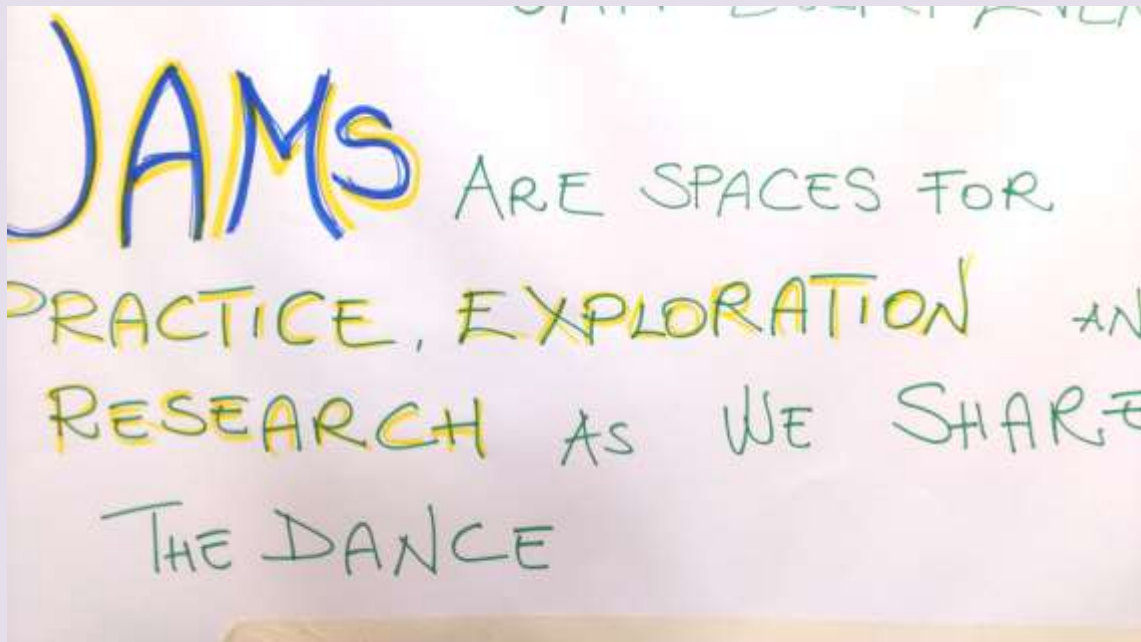 JAMS ARE SPACES FOR
PRACTICE, EXPLORATION AN
RESEARCH AS WE SHARE
THE DANCE